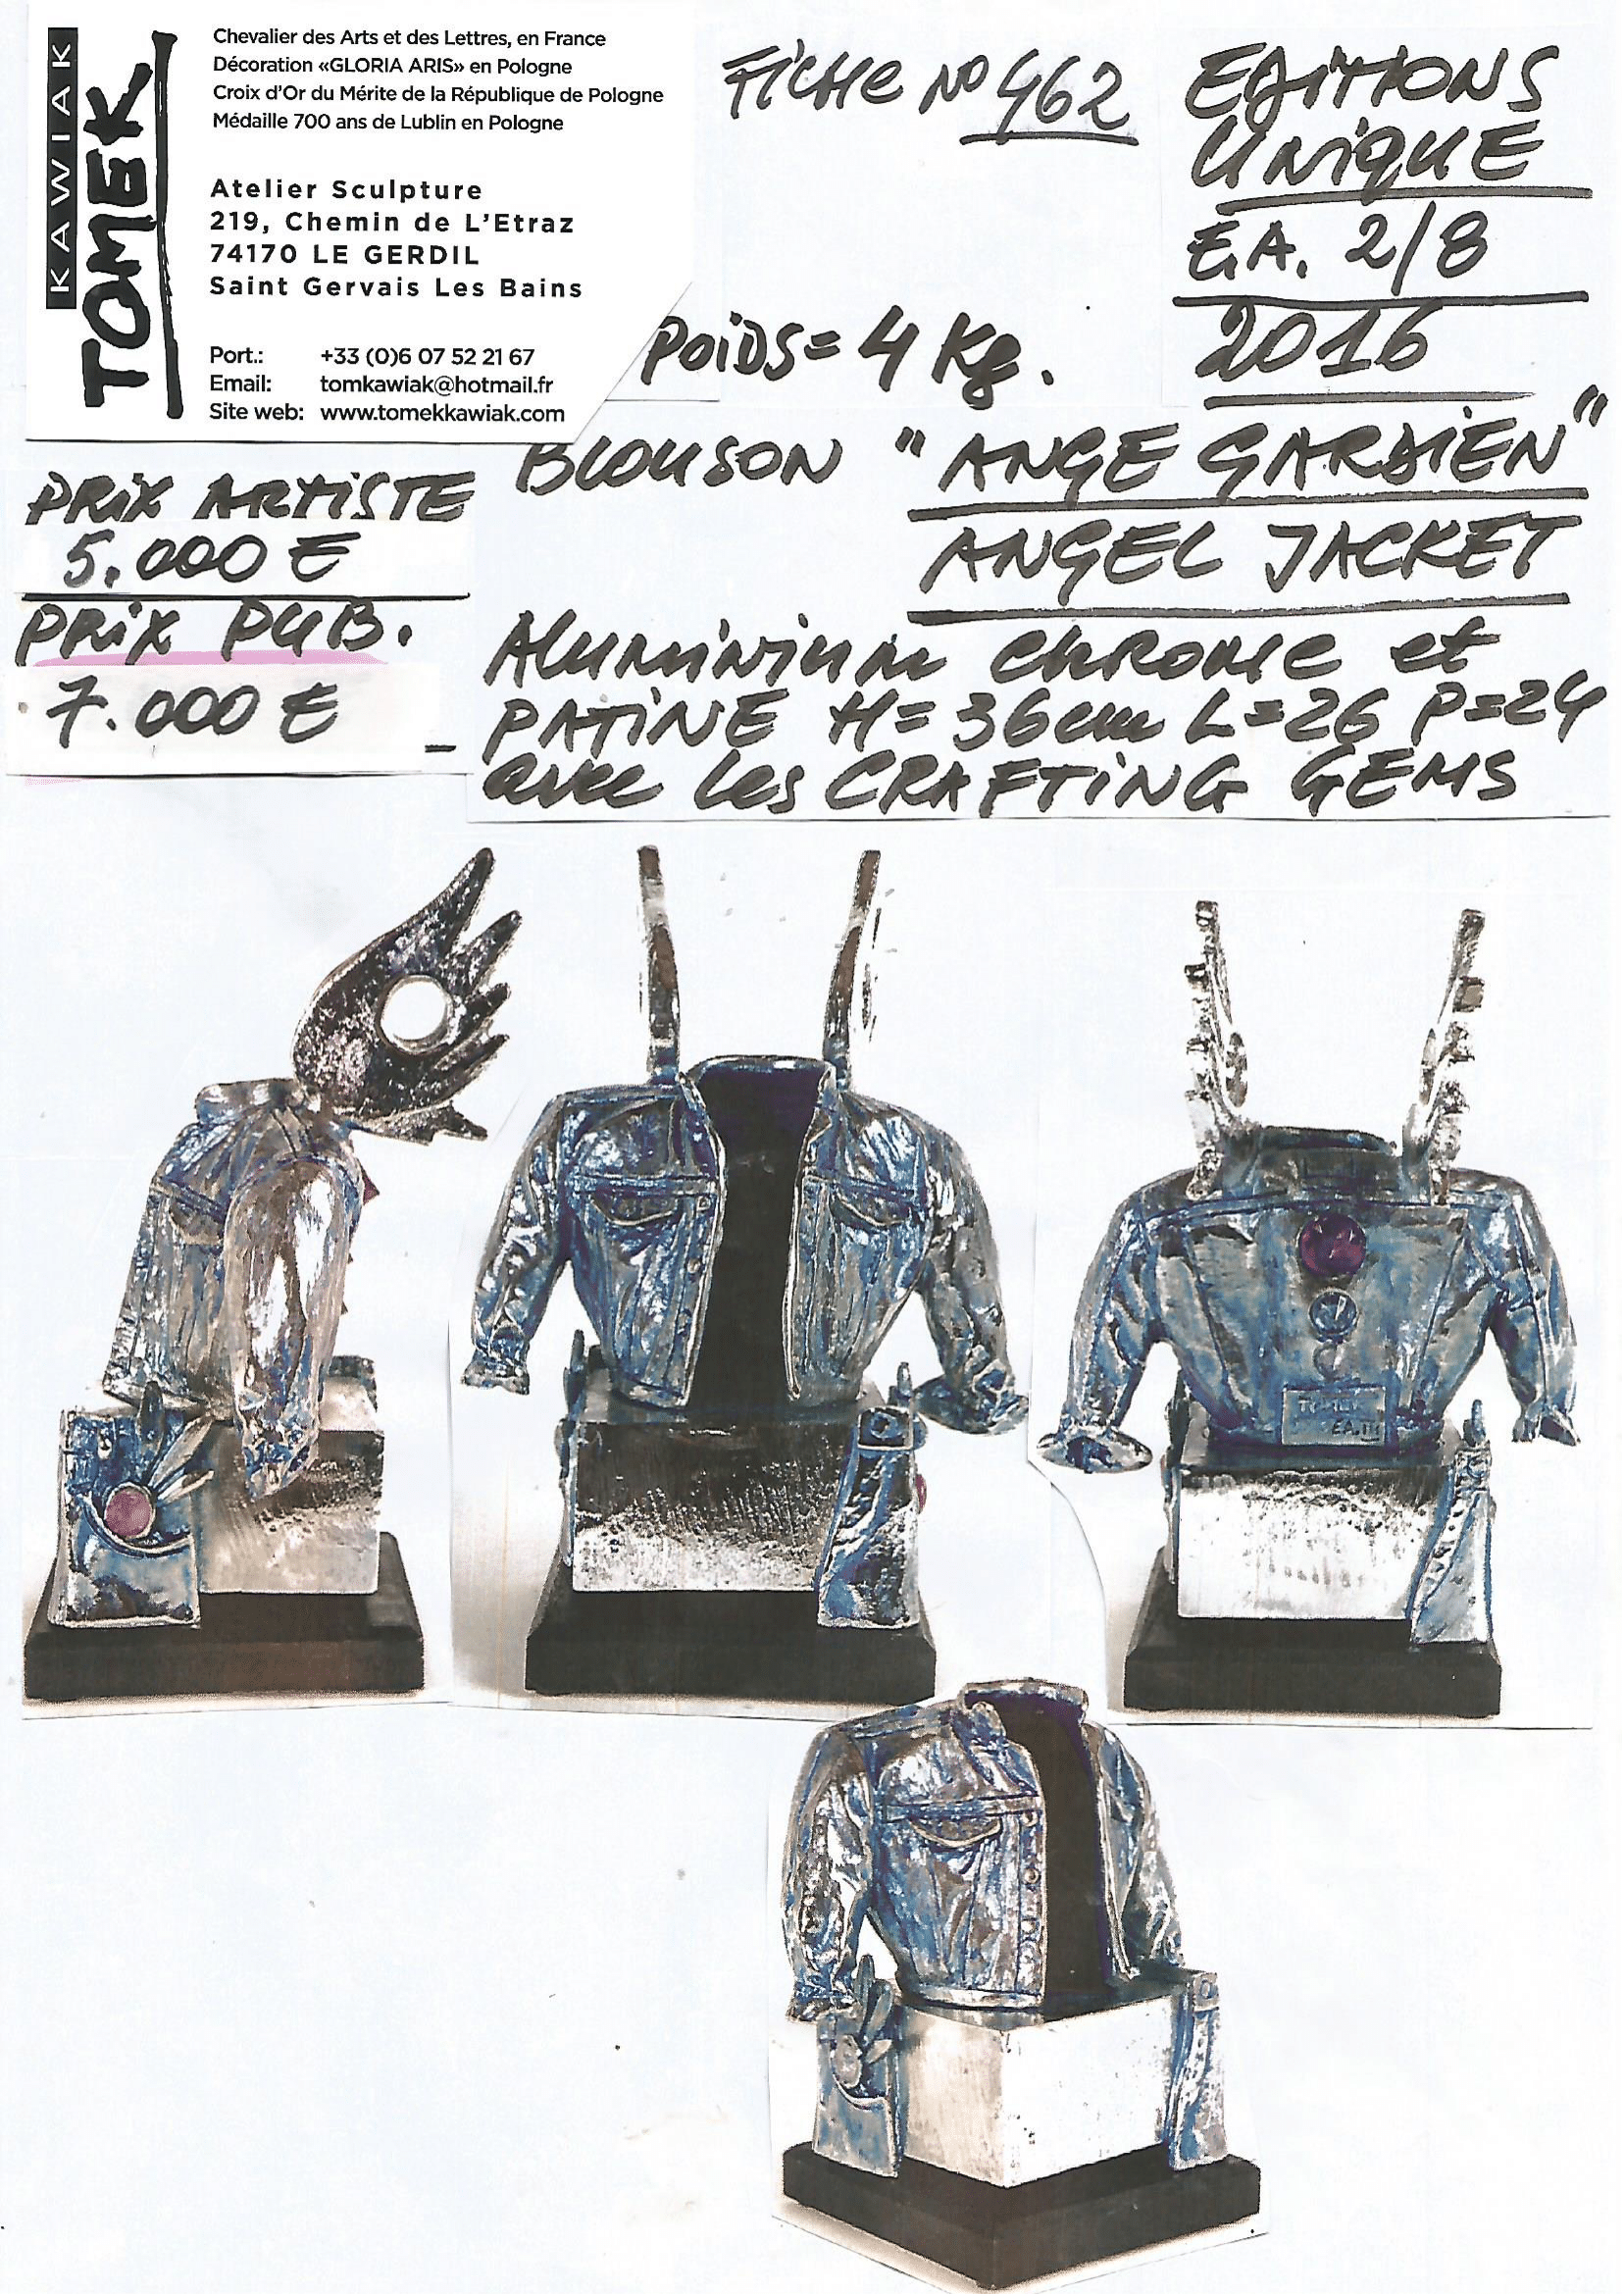 KAWIAK
TOMEK
Chevalier des Arts et des Lettres, en France
Décoration «GLORIA ARIS» en Pologne
Croix d'Or du Mérite de la République de Pologne
Médaille 700 ans de Lublin en Pologne
Atelier Sculpture
219, Chemin de L'Etraz
74170 LE GERDIL
Saint Gervais Les Bains
Port.: +33 (0)6 07 52 21 67
Email: tomkawiak@hotmail.fr
Site web: www.tomekkawiak.com
Fiche No 462
EDITIONS
UNIQUE
E.A. 2/8
2016
POIDS = 4 Kg.
BLOUSON "ANGE GARDIEN"
ANGEL JACKET
PRIX ARTISTE
5.000 €
PRIX PUB.
7.000 €
Aluminium chrome et
PATINE H=36cm L=26 P=24
avec les CRAFTING GEMS
TOMEK
EA.III